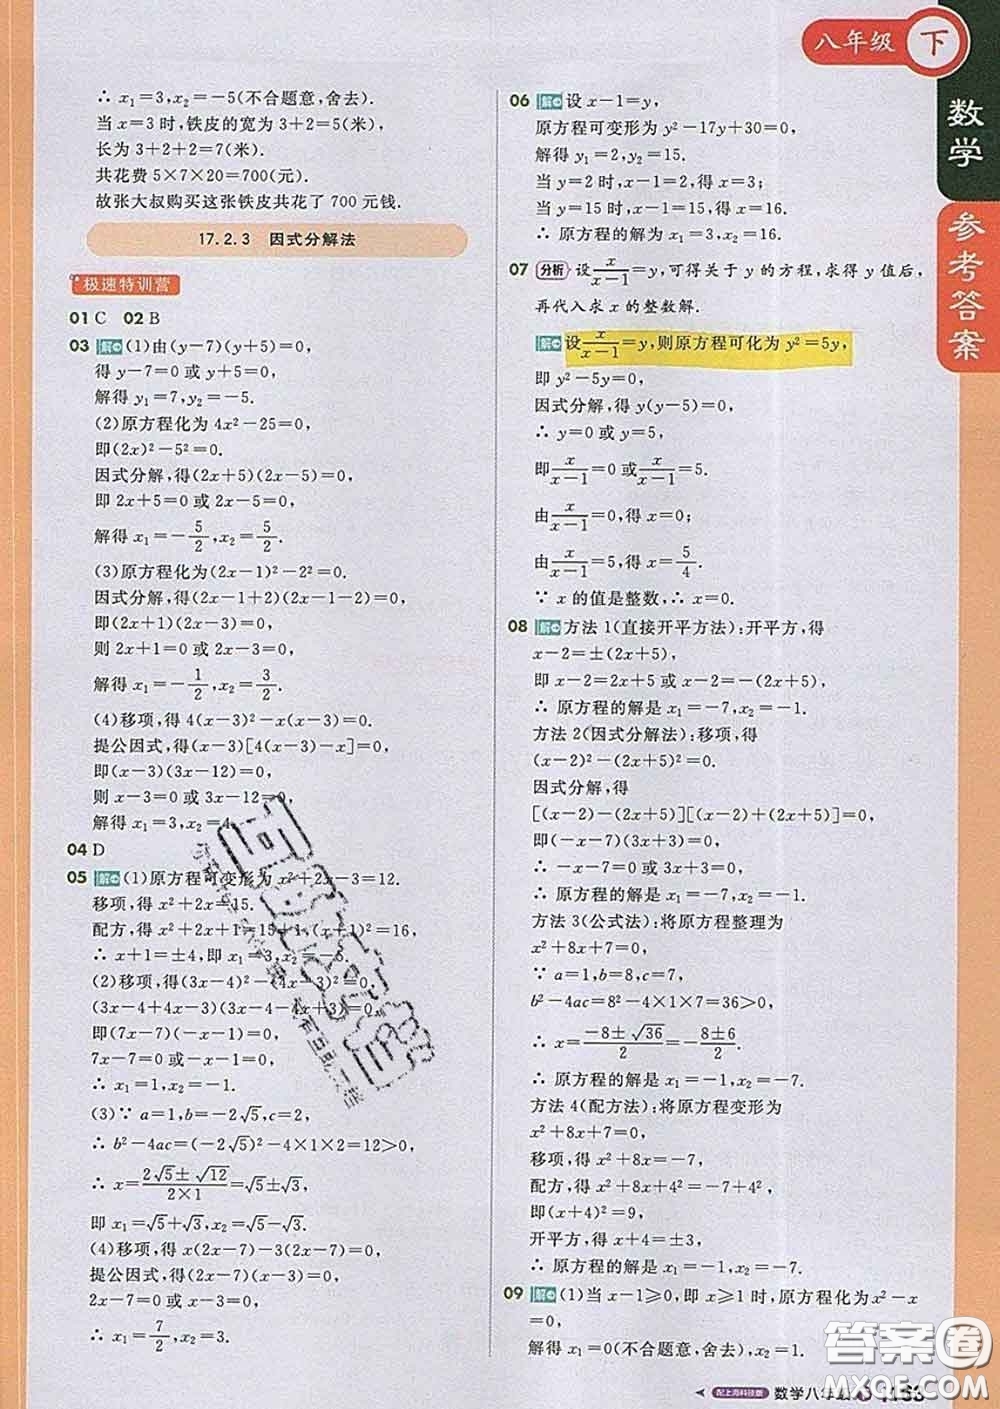 八年级 下
数学
参考答案
∴ x₁=3,x₂=-5(不合题意,舍去).
当 x=3时,铁皮的宽为 3+2=5(米),
长为 3+2+2=7(米).
共花费 5×7×20=700(元).
故张大叔购买这张铁皮共花了 700 元钱.
17.2.3 因式分解法
极速特训营
01 C 02 B
03 解 (1)由(y-7)(y+5)=0,
得 y-7=0 或 y+5=0,
解得 y₁=7,y₂=-5.
(2)原方程化为 4x²-25=0,
即(2x)²-5²=0.
因式分解,得(2x+5)(2x-5)=0,
即 2x+5=0 或 2x-5=0,
解得 x₁=-5/2,x₂=5/2.
(3)原方程化为(2x-1)²-2²=0.
因式分解,得(2x-1+2)(2x-1-2)=0,
即(2x+1)(2x-3)=0,
则 2x+1=0 或 2x-3=0,
解得 x₁=-1/2,x₂=3/2.
(4)移项,得 4(x-3)²-x(x-3)=0.
提公因式,得(x-3)[4(x-3)-x]=0,
即(x-3)(3x-12)=0,
则 x-3=0 或 3x-12=0,
解得 x₁=3,x₂=4.
04 D
05 解 (1)原方程可变形为 x²+2x-3=12.
移项,得 x²+2x=15.
配方,得 x²+2x+1=15+1,(x+1)²=16,
∴ x+1=±4,即 x₁=3,x₂=-5.
(2)移项,得(3x-4)²-(4x-3)²=0,
(3x-4+4x-3)(3x-4-4x+3)=0,
即(7x-7)(-x-1)=0,
7x-7=0 或 -x-1=0,
∴ x₁=1,x₂=-1.
(3)∵ a=1,b=-2√5,c=2,
∴ b²-4ac=(-2√5)²-4×1×2=12>0,
∴ x=(2√5±√12)/(2×1)=√5±√3,
即 x₁=√5+√3,x₂=√5-√3.
(4)移项,得 x(2x-7)-3(2x-7)=0,
提公因式,得(2x-7)(x-3)=0,
2x-7=0 或 x-3=0,
∴ x₁=7/2,x₂=3.
06 解 设 x-1=y,
原方程可变形为 y²-17y+30=0,
解得 y₁=2,y₂=15.
当 y=2 时,x-1=2,得 x=3;
当 y=15 时,x-1=15,得 x=16.
∴ 原方程的解为 x₁=3,x₂=16.
07 分析 设x/(x-1)=y,可得关于 y 的方程,求得 y 值后,
再代入求 x 的整数解.
解 设x/(x-1)=y,则原方程可化为 y²=5y,
即 y²-5y=0,
因式分解,得 y(y-5)=0,
∴ y=0 或 y=5,
即x/(x-1)=0 或x/(x-1)=5.
由x/(x-1)=0,得 x=0;
由x/(x-1)=5,得 x=5/4.
∵ x 的值是整数,∴ x=0.
08 解 方法 1(直接开平方法):开平方,得
x-2=±(2x+5),
即 x-2=2x+5 或 x-2=-(2x+5),
∴ 原方程的解是 x₁=-7,x₂=-1.
方法 2(因式分解法):移项,得
(x-2)²-(2x+5)²=0.
因式分解,得
[(x-2)-(2x+5)][(x-2)+(2x+5)]=0,
即(-x-7)(3x+3)=0,
∴ -x-7=0 或 3x+3=0,
∴ 原方程的解是 x₁=-7,x₂=-1.
方法 3(公式法):将原方程整理为
x²+8x+7=0,
∵ a=1,b=8,c=7,
b²-4ac=8²-4×1×7=36>0,
∴ x=(-8±√36)/2=(-8±6)/2.
∴ 原方程的解是 x₁=-1,x₂=-7.
方法 4(配方法):将原方程变形为
x²+8x+7=0,
移项,得 x²+8x=-7,
配方,得 x²+8x+4²=-7+4²,
即(x+4)²=9,
开平方,得 x+4=±3,
∴ 原方程的解是 x₁=-1,x₂=-7.
09 解 (1)当 x-1≥0,即 x≥1 时,原方程化为x²-x
=0,
解得 x₁=0(不合题意,舍去),x₂=1.
配上海科技版 数学八年级
答案圈